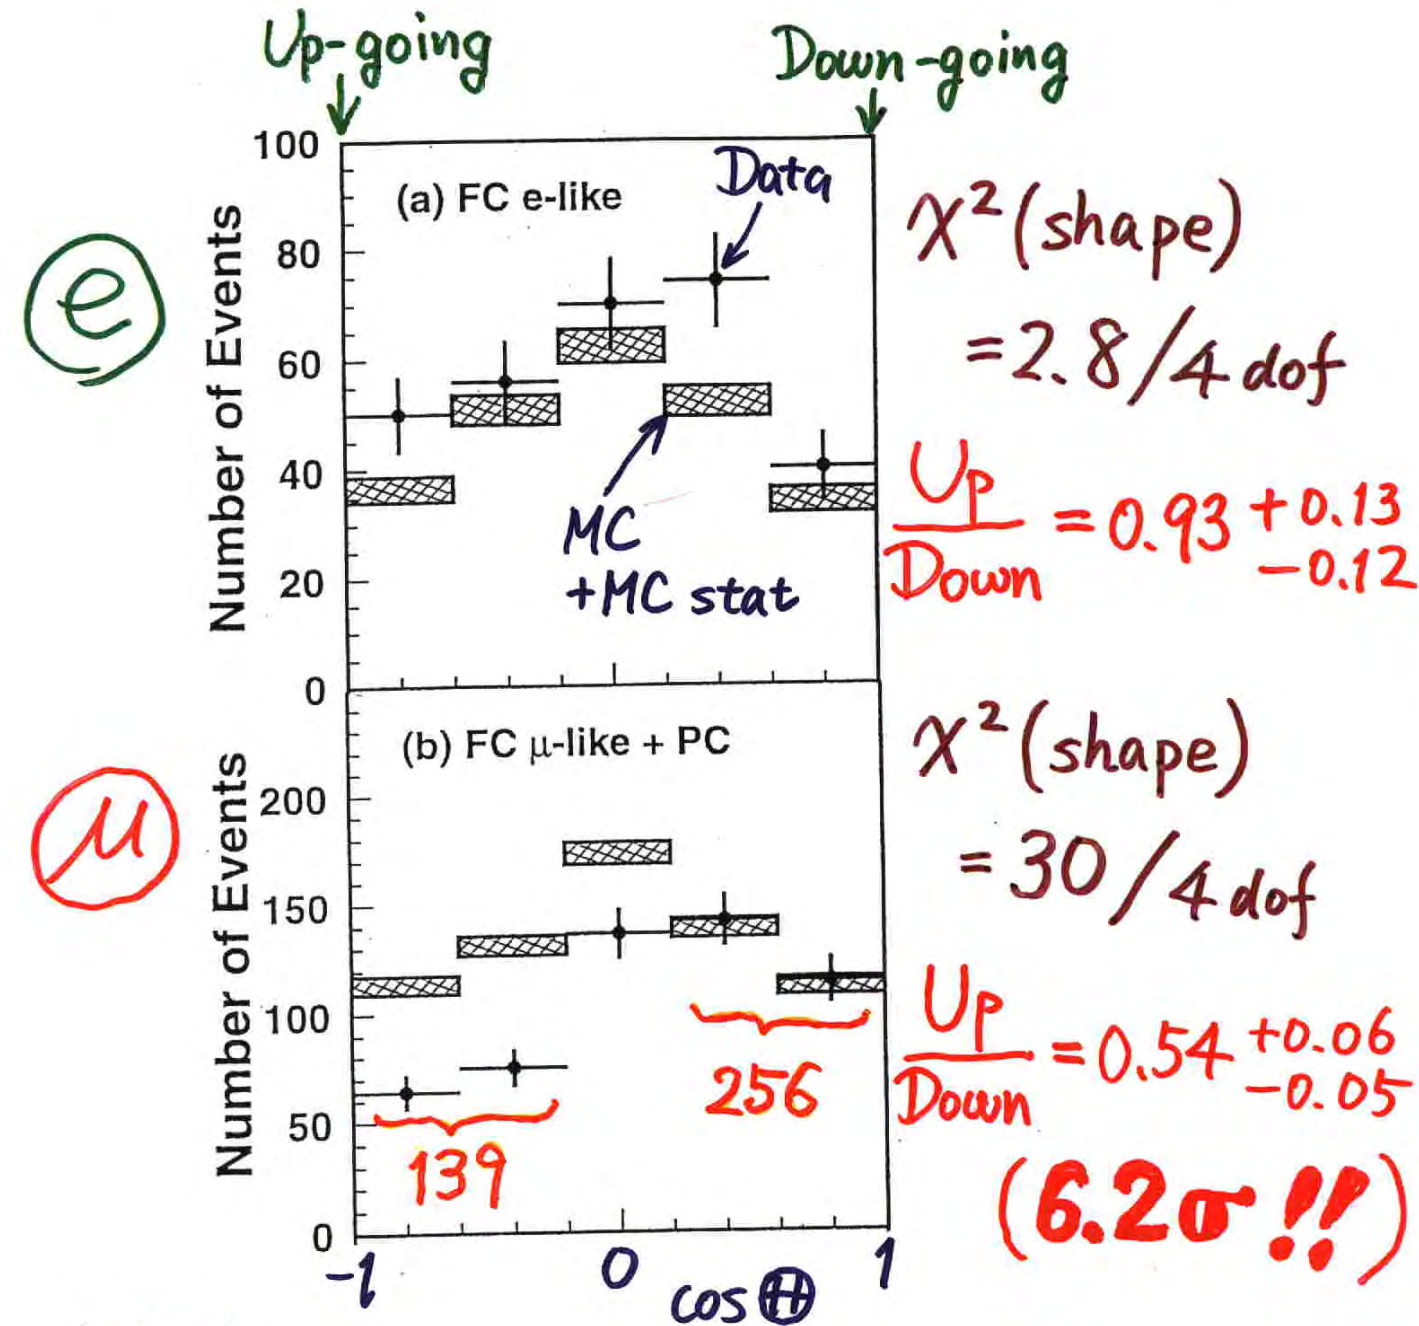 Up-going
Down-going
100
80
60
40
20
0
Number of Events
(a) FC e-like
Data
MC
+MC stat
e
χ² (shape)
= 2.8/4 dof
Up
Down
= 0.93 +0.13
-0.12
200
150
100
50
0
Number of Events
(b) FC μ-like + PC
μ
139
256
χ² (shape)
= 30/4 dof
Up
Down
= 0.54 +0.06
-0.05
(6.2σ!!)
-1
0
1
cos Θ